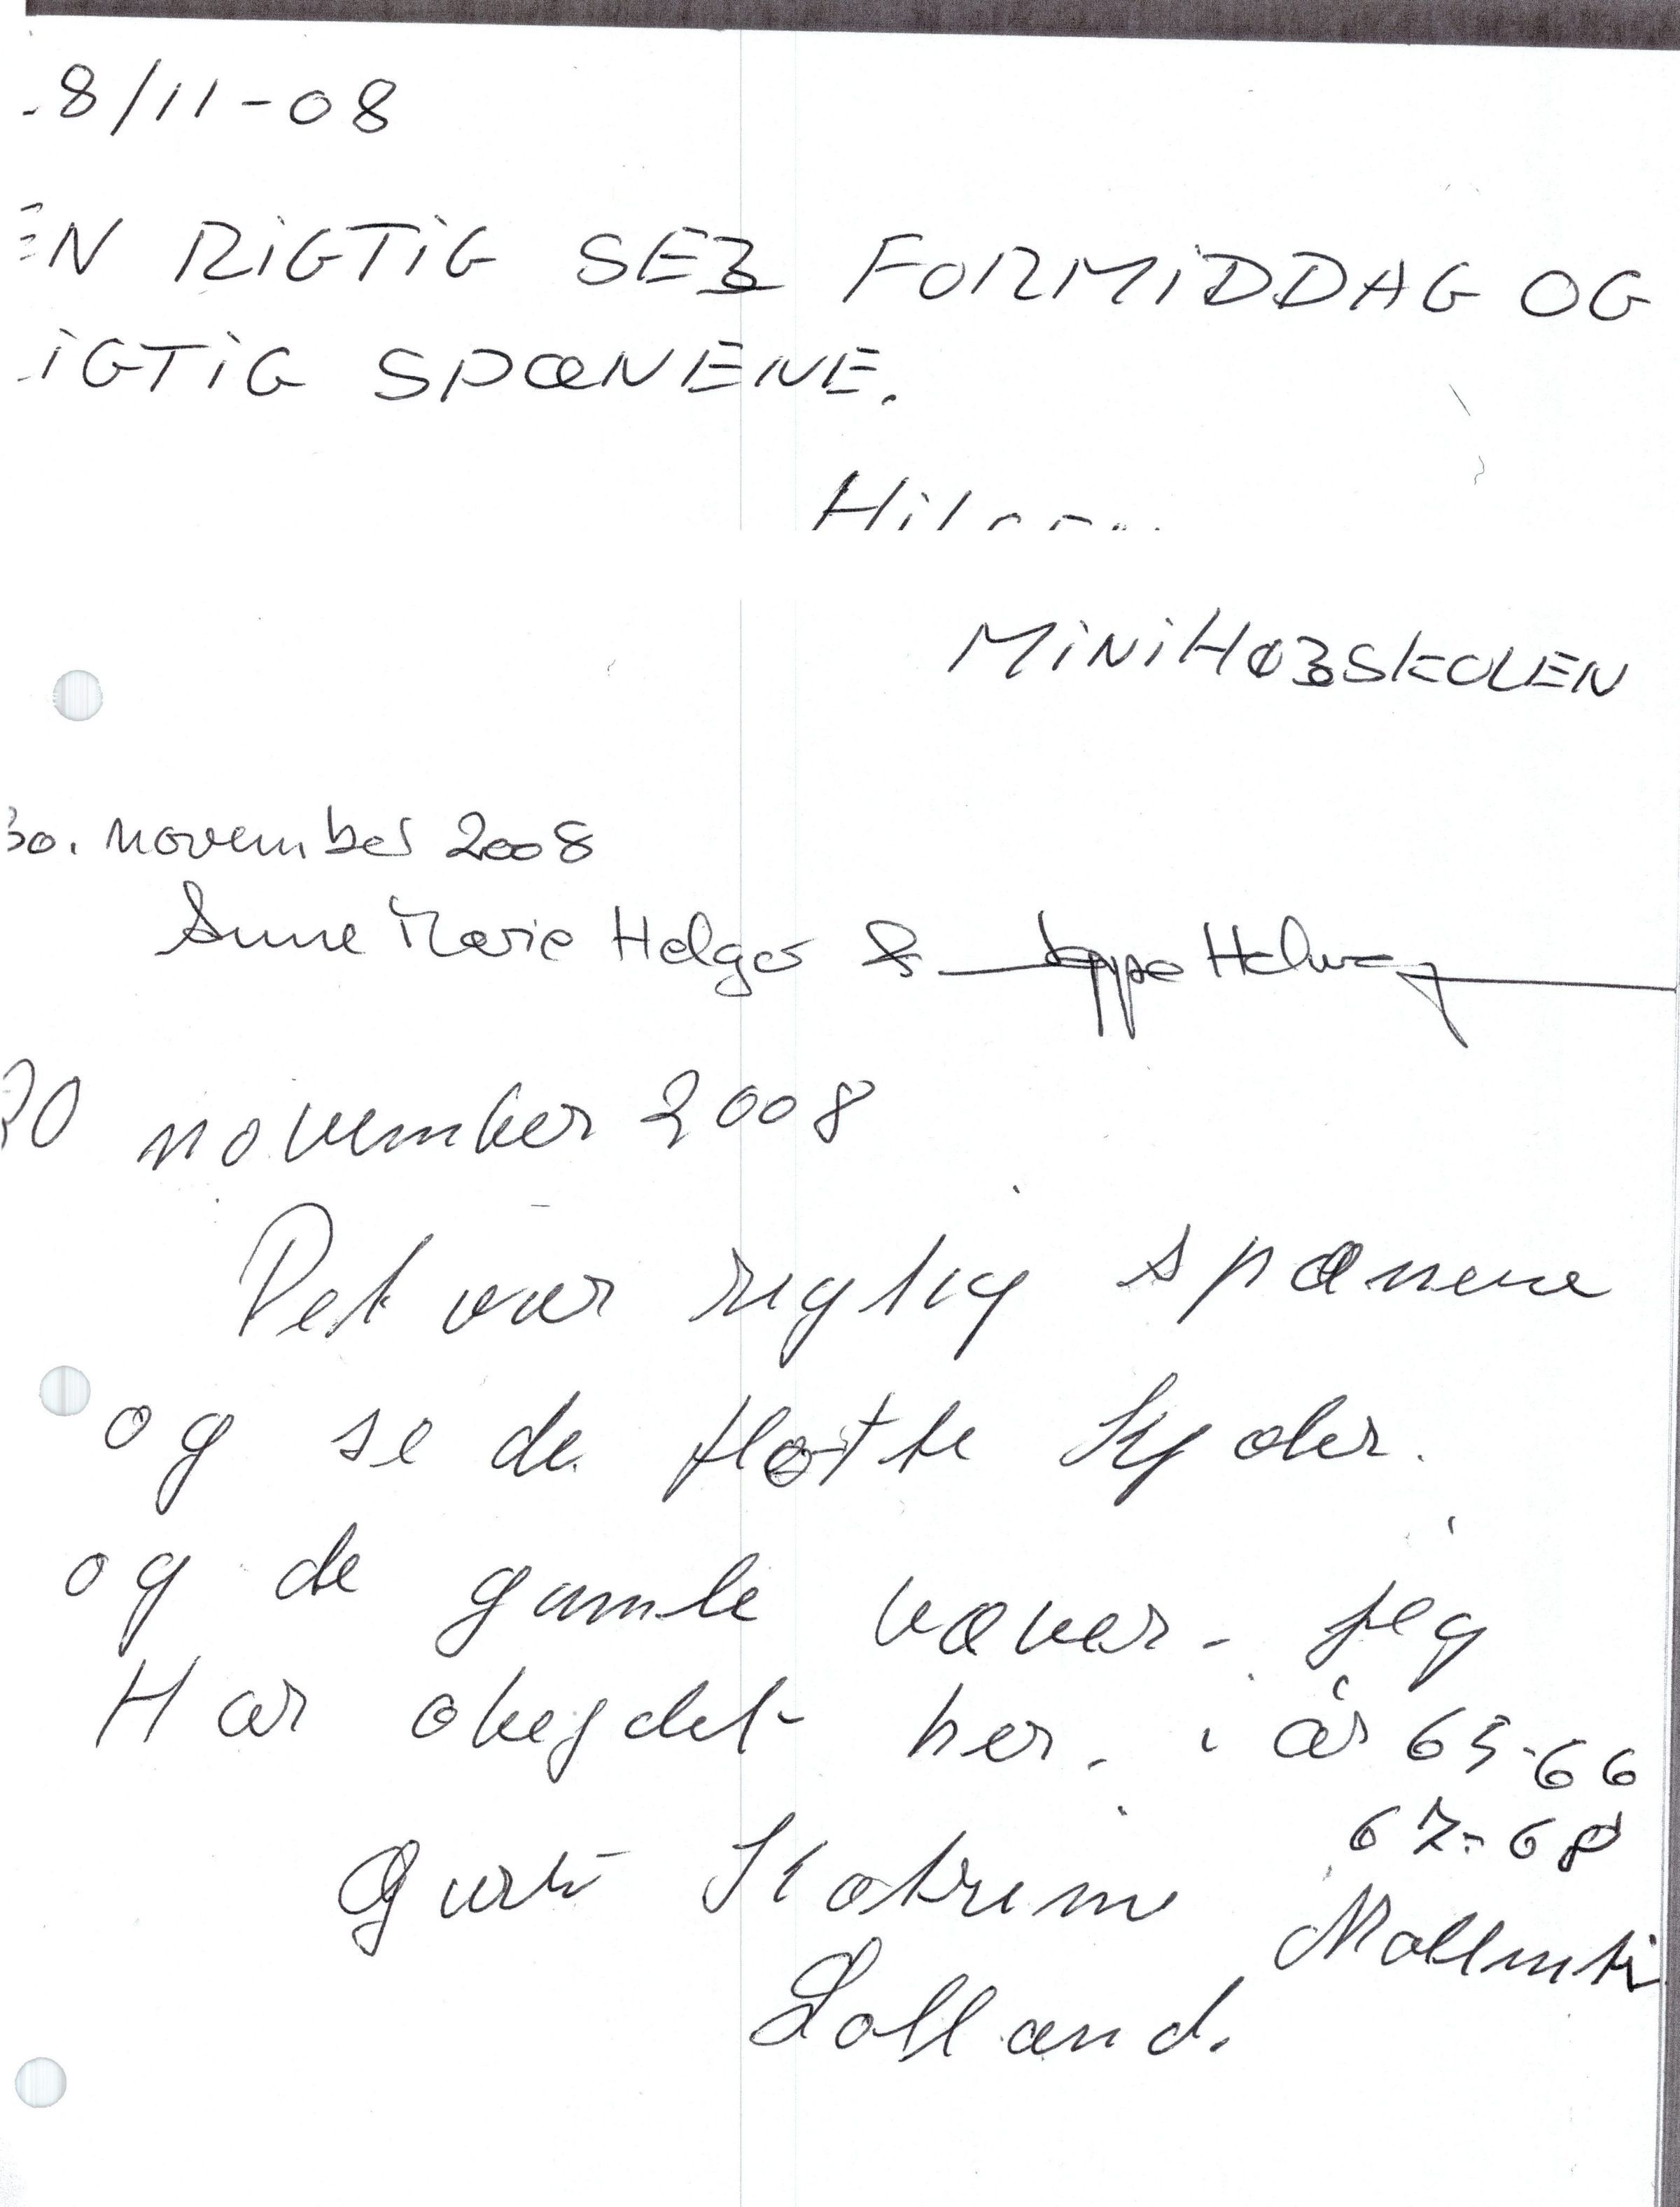 8/11-08
EN RIGTIG SEJ FORMIDDAG OG
IGTIG SPÆNENE.
MINIHØJSKOLEN
30. november 2008
Anne Marie Helger & Jeppe Helweg
30 november 2008
Det var rigtig spænene
og se de flotte Kjoler.
og de gamle væver. jeg
Har abejdet her. i år 65-66
67-68
Katrine
Lolland.